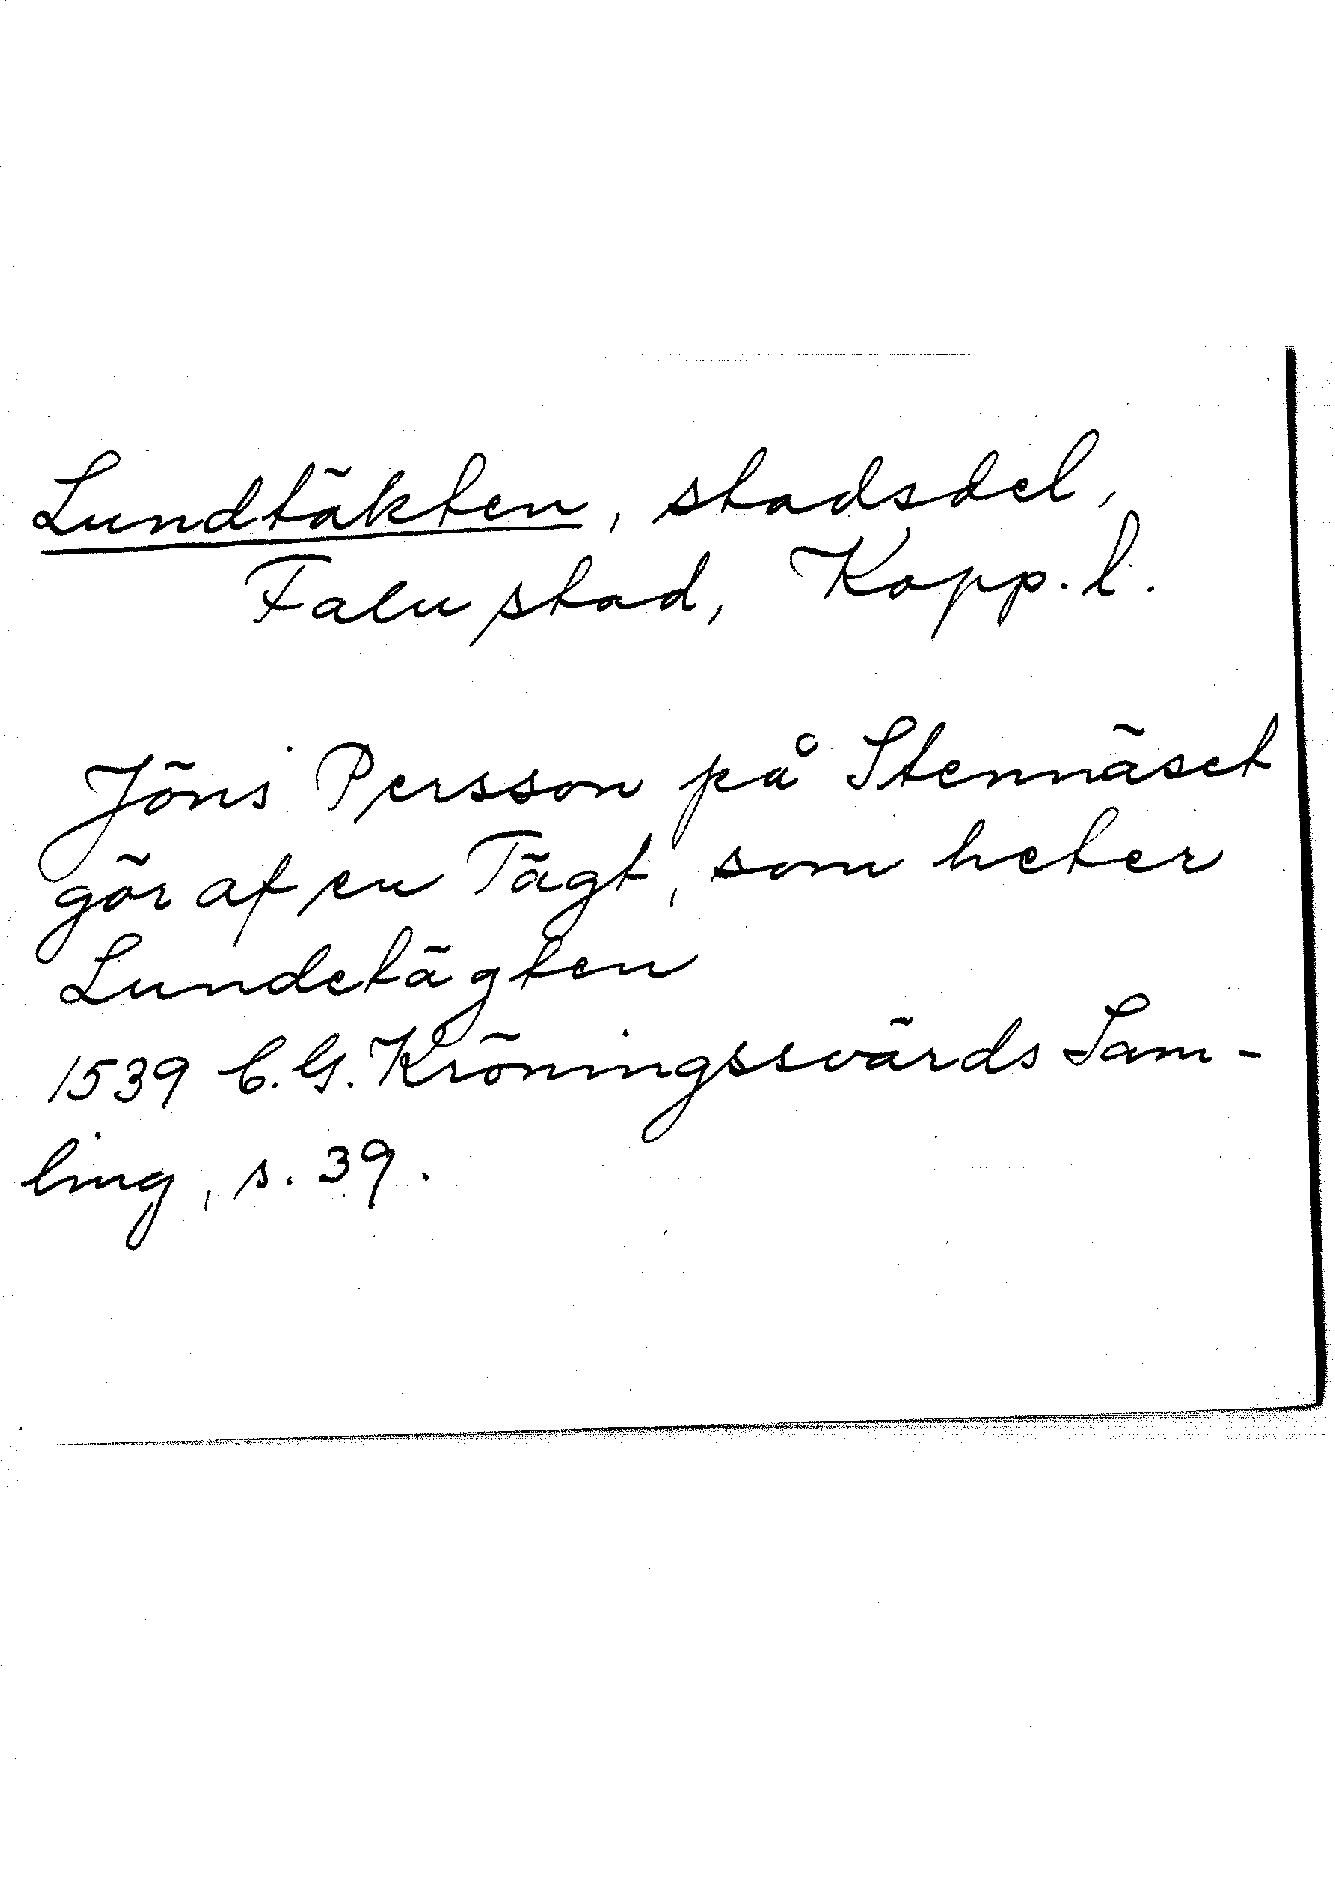 Lundtäkten, stadsdel,
Falu stad, Kopp. l.
Jöns Persson på Stennäset
gör af en Tägt, som heter
Lundetägten
1539 C. G. Kröningssvärds Sam-
ling, s. 39.